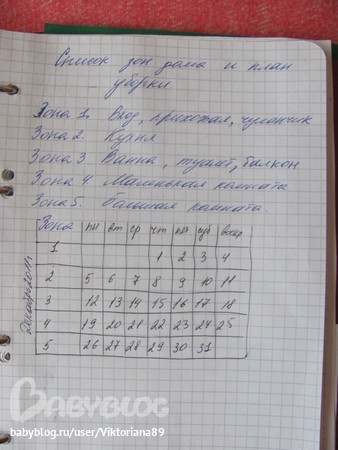 Список зон дома и план
уборки
Зона 1. Вход, прихожая, чуланчик
Зона 2. Кухня
Зона 3 Ванна, туалет, балкон
Зона 4. Маленькая комната
Зона 5. большая комната.
Зона пн вт ср чт птн суб воскр
1 1 2 3 4
2 5 6 7 8 9 10 11
3 12 13 14 15 16 17 18
4 19 20 21 22 23 24 25
5 26 27 28 29 30 31
BABYBLOG
babyblog.ru/user/Viktoriana89